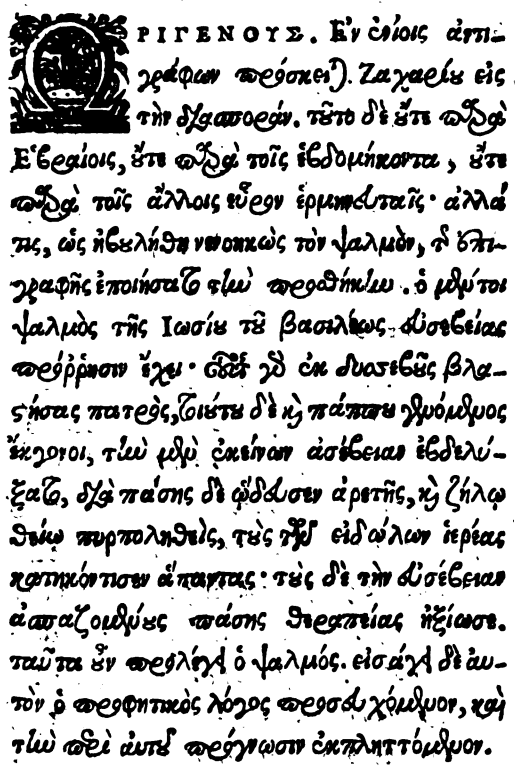 ΩΡΙΓΕΝΟΥΣ. Ἐν ἐνίοις ἀντι-
γράφων πρόσκειται. Ζαχαρίου εἰς
τὴν διασποράν. τοῦτο δὲ οὔτε παρὰ
Ἑβραίοις, οὔτε παρὰ τοῖς ἑβδομήκοντα, οὔτε
παρὰ τοῖς ἄλλοις εὗρον ἑρμηνευταῖς· ἀλλά
τις, ὡς ἠβουλήθη νενοηκὼς τὸν ψαλμὸν, τῆς ἐπι-
γραφῆς ἐποιήσατο τὴν προσθήκην. ὁ μέντοι
ψαλμὸς τῆς Ἰωσίου τοῦ βασιλέως εὐσεβείας
πρόῤῥησιν ἔχει· οὗτος γὰρ ἐκ δυσσεβοῦς βλα-
στήσας πατρὸς, τοιούτου δὲ καὶ πάππου γενόμενος
ἔκγονοι, τὴν μὲν ἐκείνων ἀσέβειαν ἐβδελύ-
ξατο, διὰ πάσης δὲ ᾥδευσεν ἀρετῆς, καὶ ζήλῳ
θείῳ πυρποληθεὶς, τοὺς τῶν εἰδώλων ἱερέας
κατηκόντισεν ἅπαντας· τοὺς δὲ τὴν εὐσέβειαν
ἀσπαζομένους πάσης θεραπείας ἠξίωσε.
ταῦτα οὖν προλέγει ὁ ψαλμός. εἰσάγει δὲ αὐ-
τὸν ὁ προφητικὸς λόγος προσευχόμενον, καὶ
τὴν περὶ αὐτοῦ πρόγνωσιν ἐκπληττόμενον.